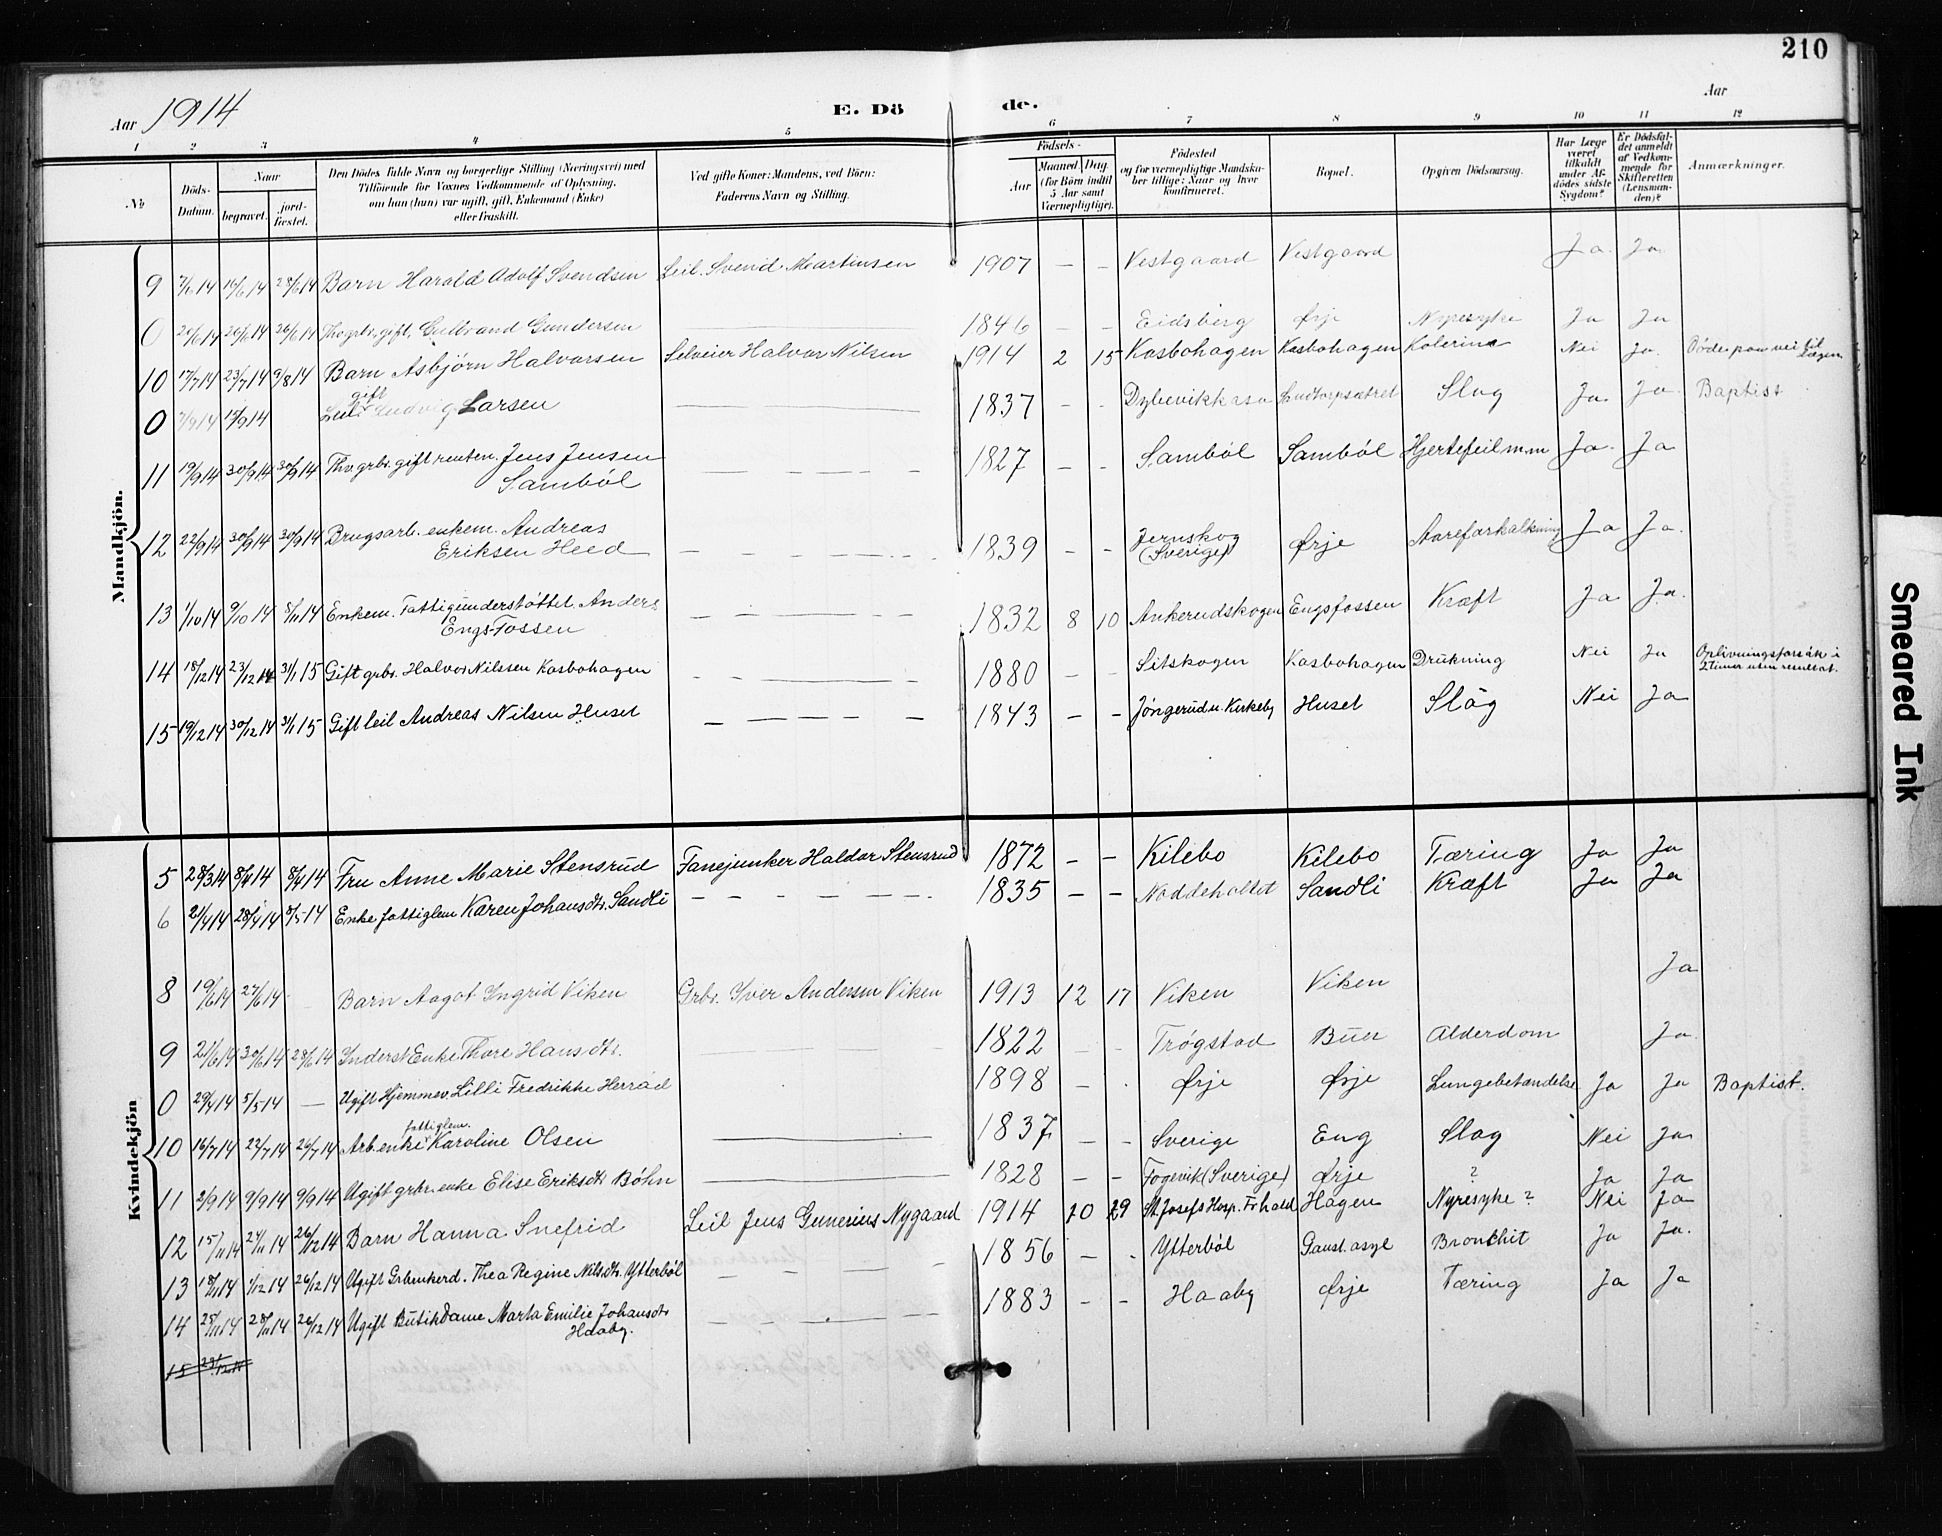 210
Aar 1914
E. Dö
de.
Aar
1 2 3 4 5 6 7 8 9 10 11 12
№
Döds-
Datum.
Naar
begravet.
jord-
fæstet.
Den Dödes fulde Navn og borgerlige Stilling (Næringsvei) med
Tilföiende for Voxnes Vedkommende af Oplysning,
om han (hun) var ugift, gift, Enkemand (Enke)
eller fraskilt.
Ved gifte Koner: Mandens, ved Börn:
Faderens Navn og Stilling.
Födsels-
Aar
Maaned. Dag.
(for Börn indtil
5 Aar samt
Værnepligtige).
Födested
og for værnepligtige Mandska-
ber tillige: Naar og hvor
konfirmeret.
Bopæl.
Opgiven Dödsaarsag.
Har Læge
været
tilkaldt
under Af-
dödes sidste
Sygdom?
Er Dödsfal-
det anmeldt
af Vedkom-
mende for
Skifteretten
(Lensman-
den)?
Anmærkninger.
Mandkjön.
9 7/6 14 16/6 14 28/6 14 Barn Harald Adolf Svendsen Leil. Svend Martinsen 1907 — — Vestgaard Vestgaard Ja Ja
0 20/6 14 26/6 14 26/6 14 Thvgrbr. gift, Gulbrand Gundersen 1846 — — Eidsberg Ørje Nyresyke Ja Ja
10 17/7 14 23/7 14 9/8 14 Barn Asbjørn Halvorsen Selveier Halvor Nilsen 1914 2 15 Kasbohagen Kasbohagen Kolerina Nei Ja Döde paa vei til
Lægen
0 7/9 14 15/9 14 Leil. gift Ludvig Larsen 1837 - - Slag Ja Ja Baptist
11 19/9 14 30/9 14 30/9 14 Thv. grbr. gift renten. Jens Jensen
Sambøl 1827 — — Sambøl Sambøl Hjertefeil m.m Ja Ja
12 22/9 14 30/9 14 30/9 14 Brugsarb. enkem. Andreas
Eriksen Heed 1839 — — Jernskog
(Sverige) Ørje Aareforkalkning Ja Ja
13 1/10 14 9/10 14 8/11 14 Enkem. Fattigunderstøttet. Anders
Engs-Fossen 1832 8 10 Ankerudskogen Engsfossen Kræft Ja Ja
14 18/12 14 23/12 14 31/1 15 Gift grbr. Halvor Nilssen Kasbohagen 1880 - - Sitskogen Kasbohagen Drukning Nei Ja Oplivningsforsøk i
2 timer uten resultat.
15 19/12 14 30/12 14 31/1 15 Gift leil Andreas Nilsen Huset 1843 — — Jøngerud u. Kirkeby Huset Slag Nei Ja
Kvindekjön
5 28/3 14 8/4 14 8/4 14 Fru Anne Marie Stensrud Fanejunker Haldor Stensrud 1872 — — Kilebo Kilebo Tæring Ja Ja
6 21/4 14 28/4 14 3/5 14 Enke fattiglem Karen Johansdtr. Sandli 1835 — — Noddeholtet Sandli Kræft Ja Ja
8 19/6 14 27/6 14 Barn Aagot Ingrid Viken Grbr. Iver Andersen Viken 1913 12 17 Viken Viken Ja
9 21/6 14 30/6 14 28/6 14 Inderst Enke Thore Hansdtr. 1822 — — Trøgstad Buer Alderdom Ja
0 29/4 14 5/5 14 — Ugift Hjemmev. Lilli Fredrikke Herrad 1898 — Ørje Ørje Lungebetændelse Ja Ja Baptist.
10 16/7 14 22/7 14 26/7 14 Arb. enke fattiglem. Karoline Olsen 1837 — — Sverige Eng Slag Nei Ja
11 2/9 14 9/9 14 9/9 14 Ugift grbr. enke Elise Eriksdtr Bøhn 1828 — — Fogevik (Sverige) Ørje ? Ja Ja
12 15/11 14 24/11 14 26/12 14 Barn Hanna Snefrid Leil Jens Gunerius Nygaard 1914 10 29 St. Josefs Hosp. Frhald Hagen Nyresyke ? Nei Ja
13 18/11 14 1/12 14 26/12 14 Ugift Grbrukerd. Thea Regine Nilsdtr. Ytterbøl 1856 — — Ytterbøl Gaust. asyl Bronchit Ja Ja.
14 25/11 14 28/11 14 26/12 14 Ugift Butikdame Marta Emilie Johansdtr
Haaby. 1883 — — Haaby Ørje Tæring Ja Ja
15 23/12 14
Smeared Ink